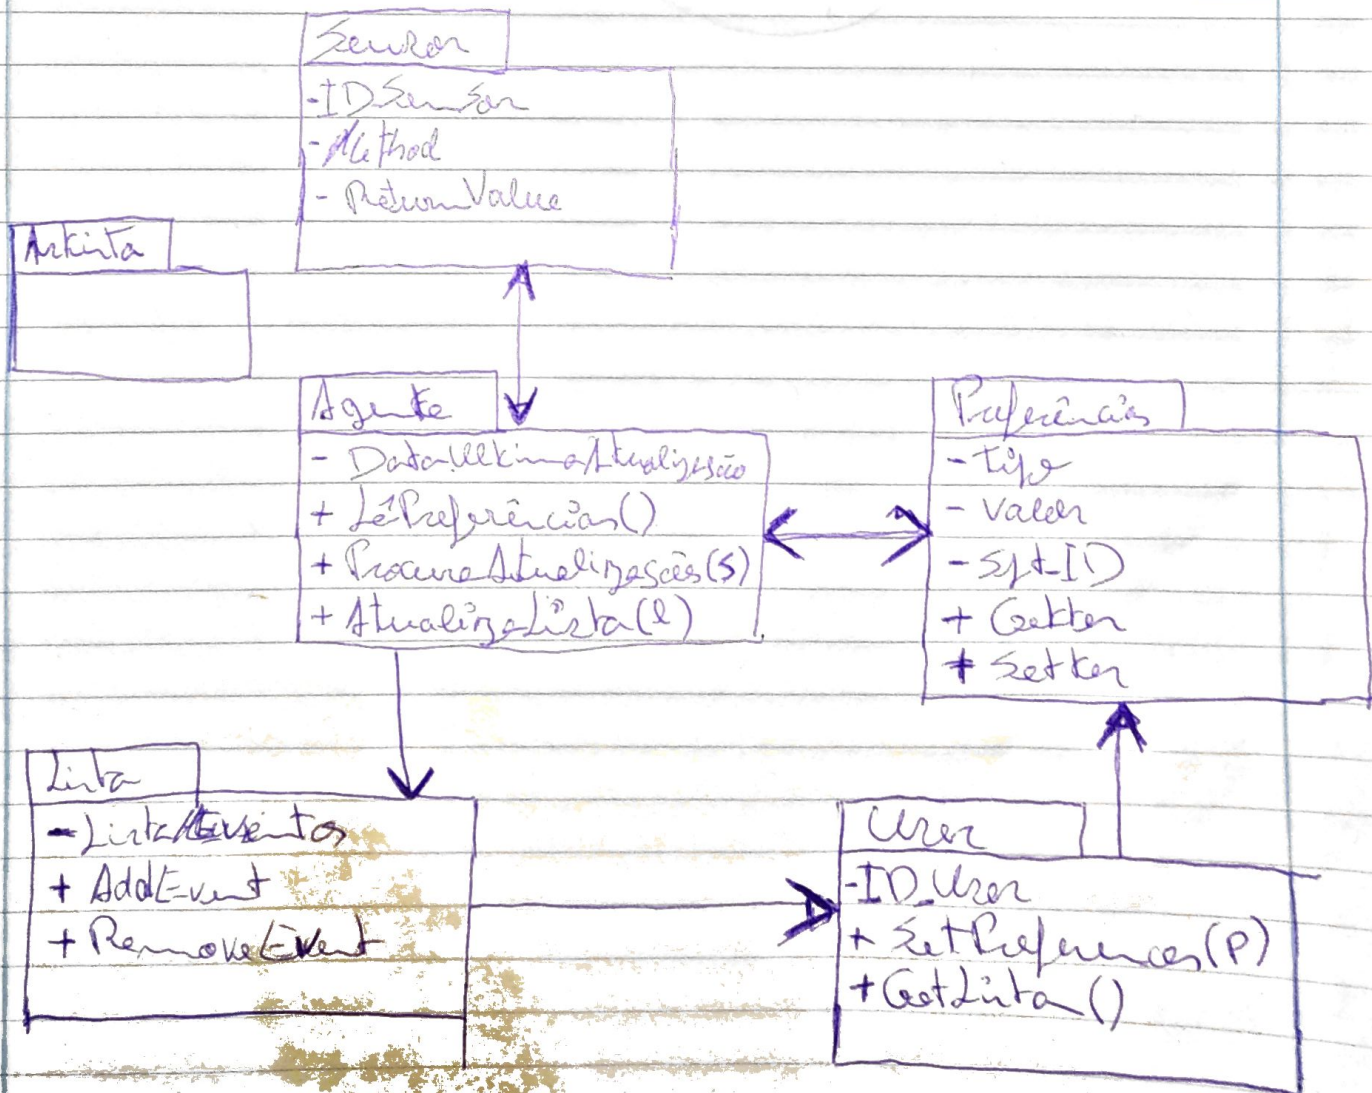 Sensor
-IDSensor
- Method
- ReturnValue
Artista
Agente
- DataUltimaAtualização
+ LêPreferências()
+ ProcuraAtualizações(s)
+ AtualizaLista(l)
Preferências
- Tipo
- Valor
+ Getter
+ Setter
Lista
- ListaEventos
+ AddEvent
+ RemoveEvent
User
-ID_User
+ SetPreferences(P)
+ GetLista()